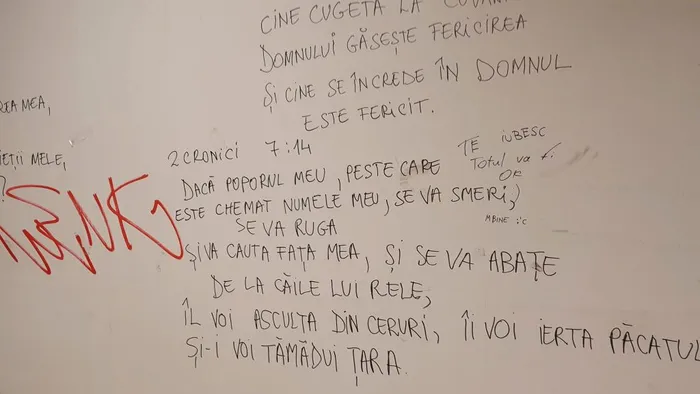 CINE CUGETĂ LA
DOMNULUI GĂSEȘTE FERICIREA
ȘI CINE SE ÎNCREDE ÎN DOMNUL
ESTE FERICIT.
MEA,
MELE,
2 CRONICI 7:14
DACĂ POPORUL MEU, PESTE CARE
ESTE CHEMAT NUMELE MEU, SE VA SMERI,
SE VA RUGA
ȘI VA CAUTA FAȚA MEA, ȘI SE VA ABATE
DE LA CĂILE LUI RELE,
ÎL VOI ASCULTA DIN CERURI, ÎI VOI IERTA PĂCATUL
ȘI-I VOI TĂMĂDUI ȚARA.
TE IUBESC
Totul va fi
OK